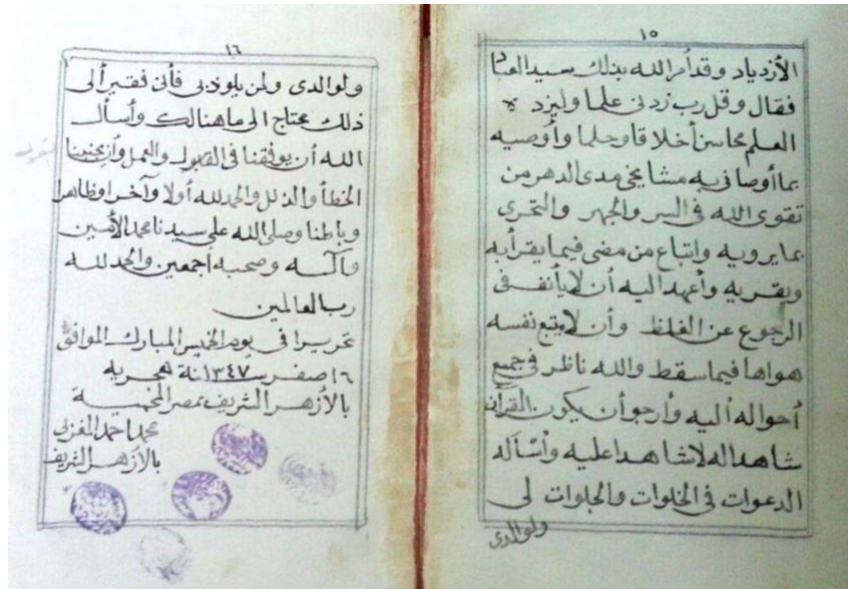 ١٥
الأزدياد وقد أمر الله بذلك سيد العباد
فقال وقل رب زدني علما وليزده
العلم محاسن أخلاقا وحلما وأوصيه
بما أوصاني به مشايخي مدى الدهر من
تقوى الله في السر والجهر والتحري
بما يرويه واتباع من مضى فيما يقرأ به
ويقريه وأعهد اليه أن لا يأنف في
الرجوع عن الغلظ وأن لا يتبع نفسه
هواها فيما سقط والله ناظر في جميع
أحواله أليه وأرجو أن يكون القرآن
شاهدا له لا شاهدا عليه وأسأله
الدعوات في الخلوات والجلوات لى
ولوالدى
١٦
ولوالدى ولمن يلوذ بى فأنى فقير ألى
ذلك محتاج الى ما هنالك وأسأل
الله أن يوفقنا في القبول والعمل وأن يجنبنا
الخطأ والذلل والحمد لله أولا وآخرا وظاهرا
وباطنا وصلى الله على سيدنا محمد الأمين
وآله وصحبه اجمعين والحمد لله
رب العالمين
تحريرا في يوم الخميس المبارك الموافق
١٦ صفر سنة ١٣٤٧ هجريه
بالأزهر الشريف بمصر المحمية
محمد احمد الغزلى
بالأزهر الشريف